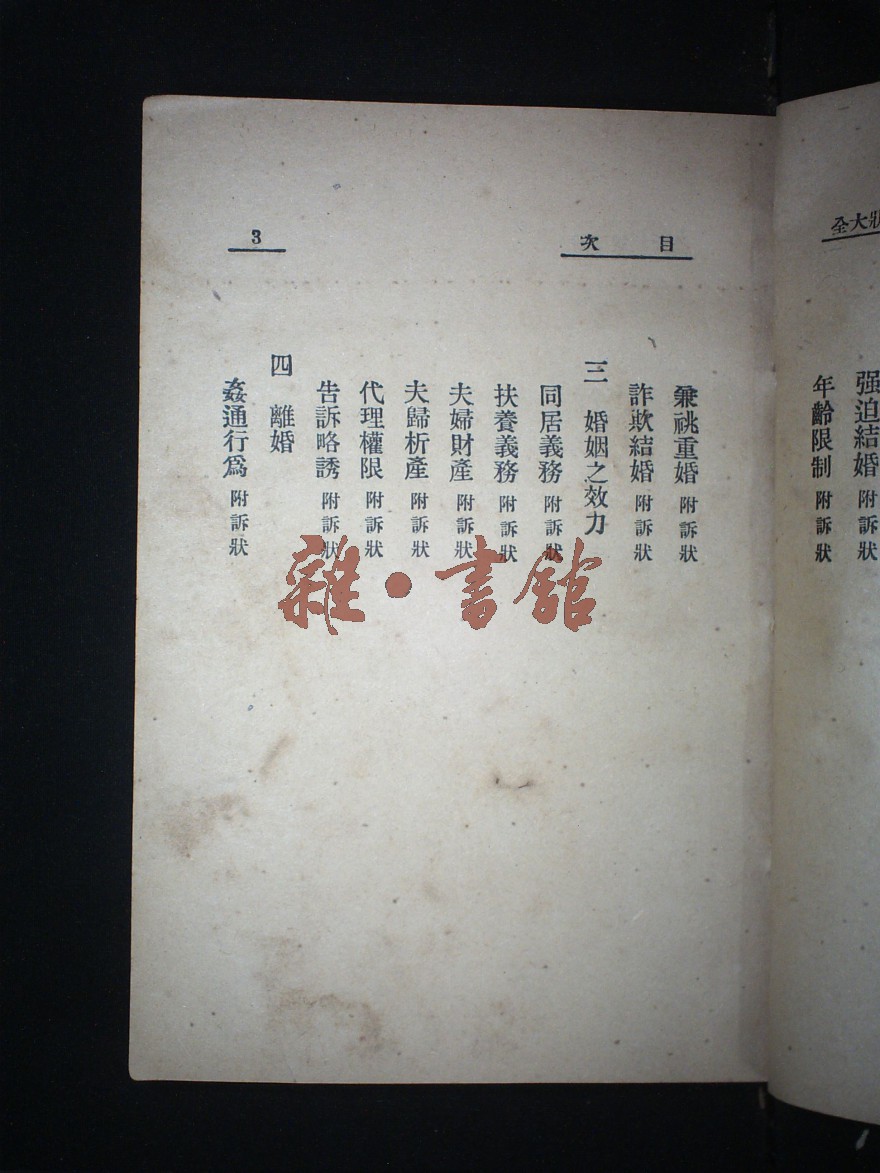 全大狀
强迫結婚 附訴狀
年齡限制 附訴狀
目次
3
兼祧重婚 附訴狀
詐欺結婚 附訴狀
三 婚姻之效力
同居義務 附訴狀
扶養義務 附訴狀
夫婦財產 附訴狀
夫歸析產 附訴狀
代理權限 附訴狀
告訴略誘 附訴狀
四 離婚
姦通行爲 附訴狀
雜·書館